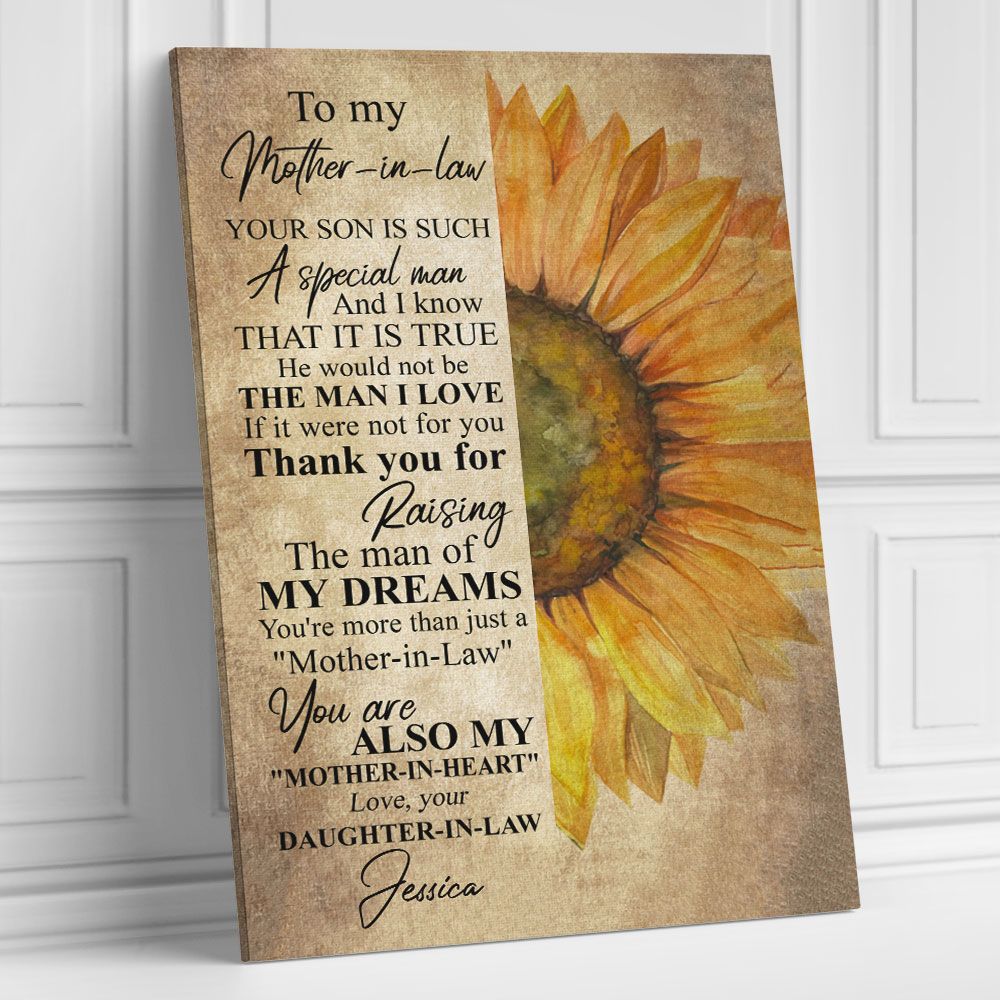 To my
Mother-in-law
YOUR SON IS SUCH
A special man
And I know
THAT IT IS TRUE
He would not be
THE MAN I LOVE
If it were not for you
Thank you for
Raising
The man of
MY DREAMS
You're more than just a
"Mother-in-Law"
You are
ALSO MY
"MOTHER-IN-HEART"
Love, your
DAUGHTER-IN-LAW
Jessica